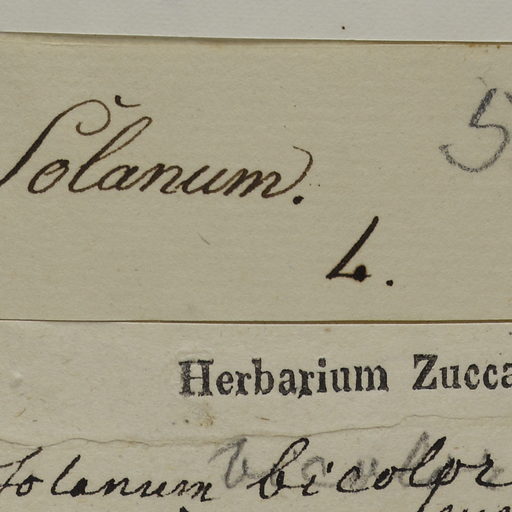 Solanum.
5
L.
Herbarium Zucca
Solanum bicolor